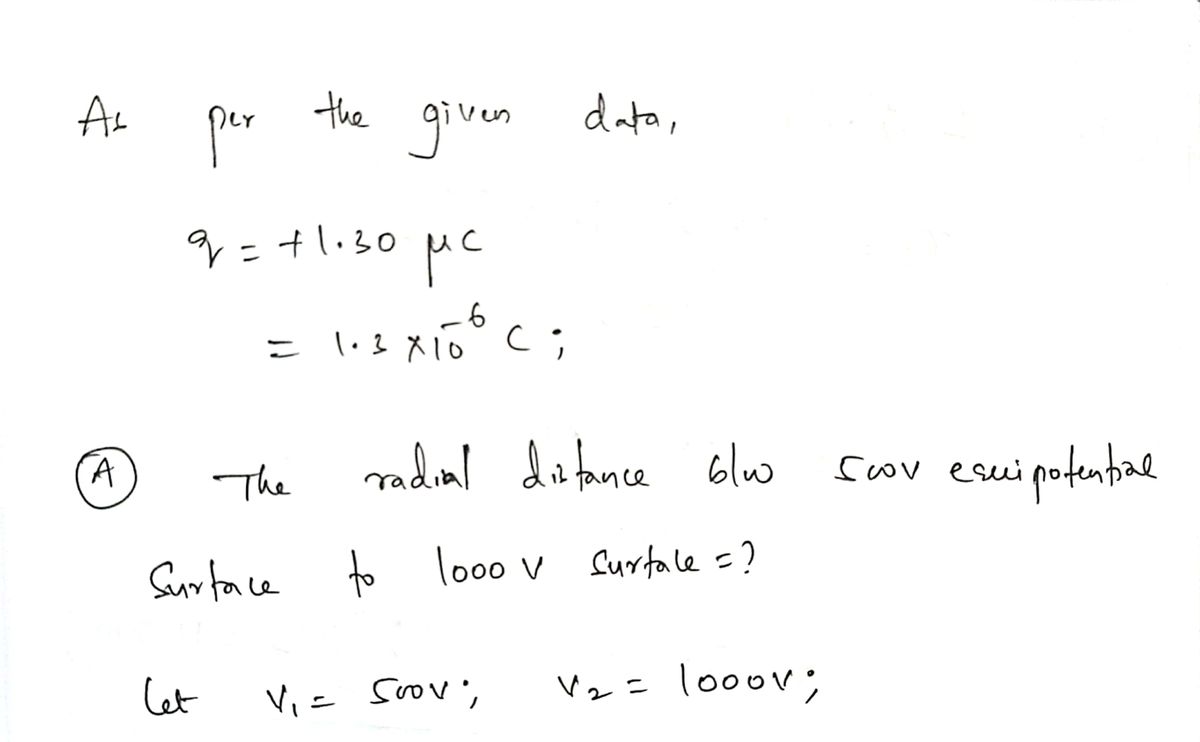 As per the given data,
q = +1.30 μC
= 1.3 × 10⁻⁶ C ;
Ⓐ The radial distance b/w 500V equipotential
Surface to 1000 V Surface = ?
Let V₁ = 500V ; V₂ = 1000V ;